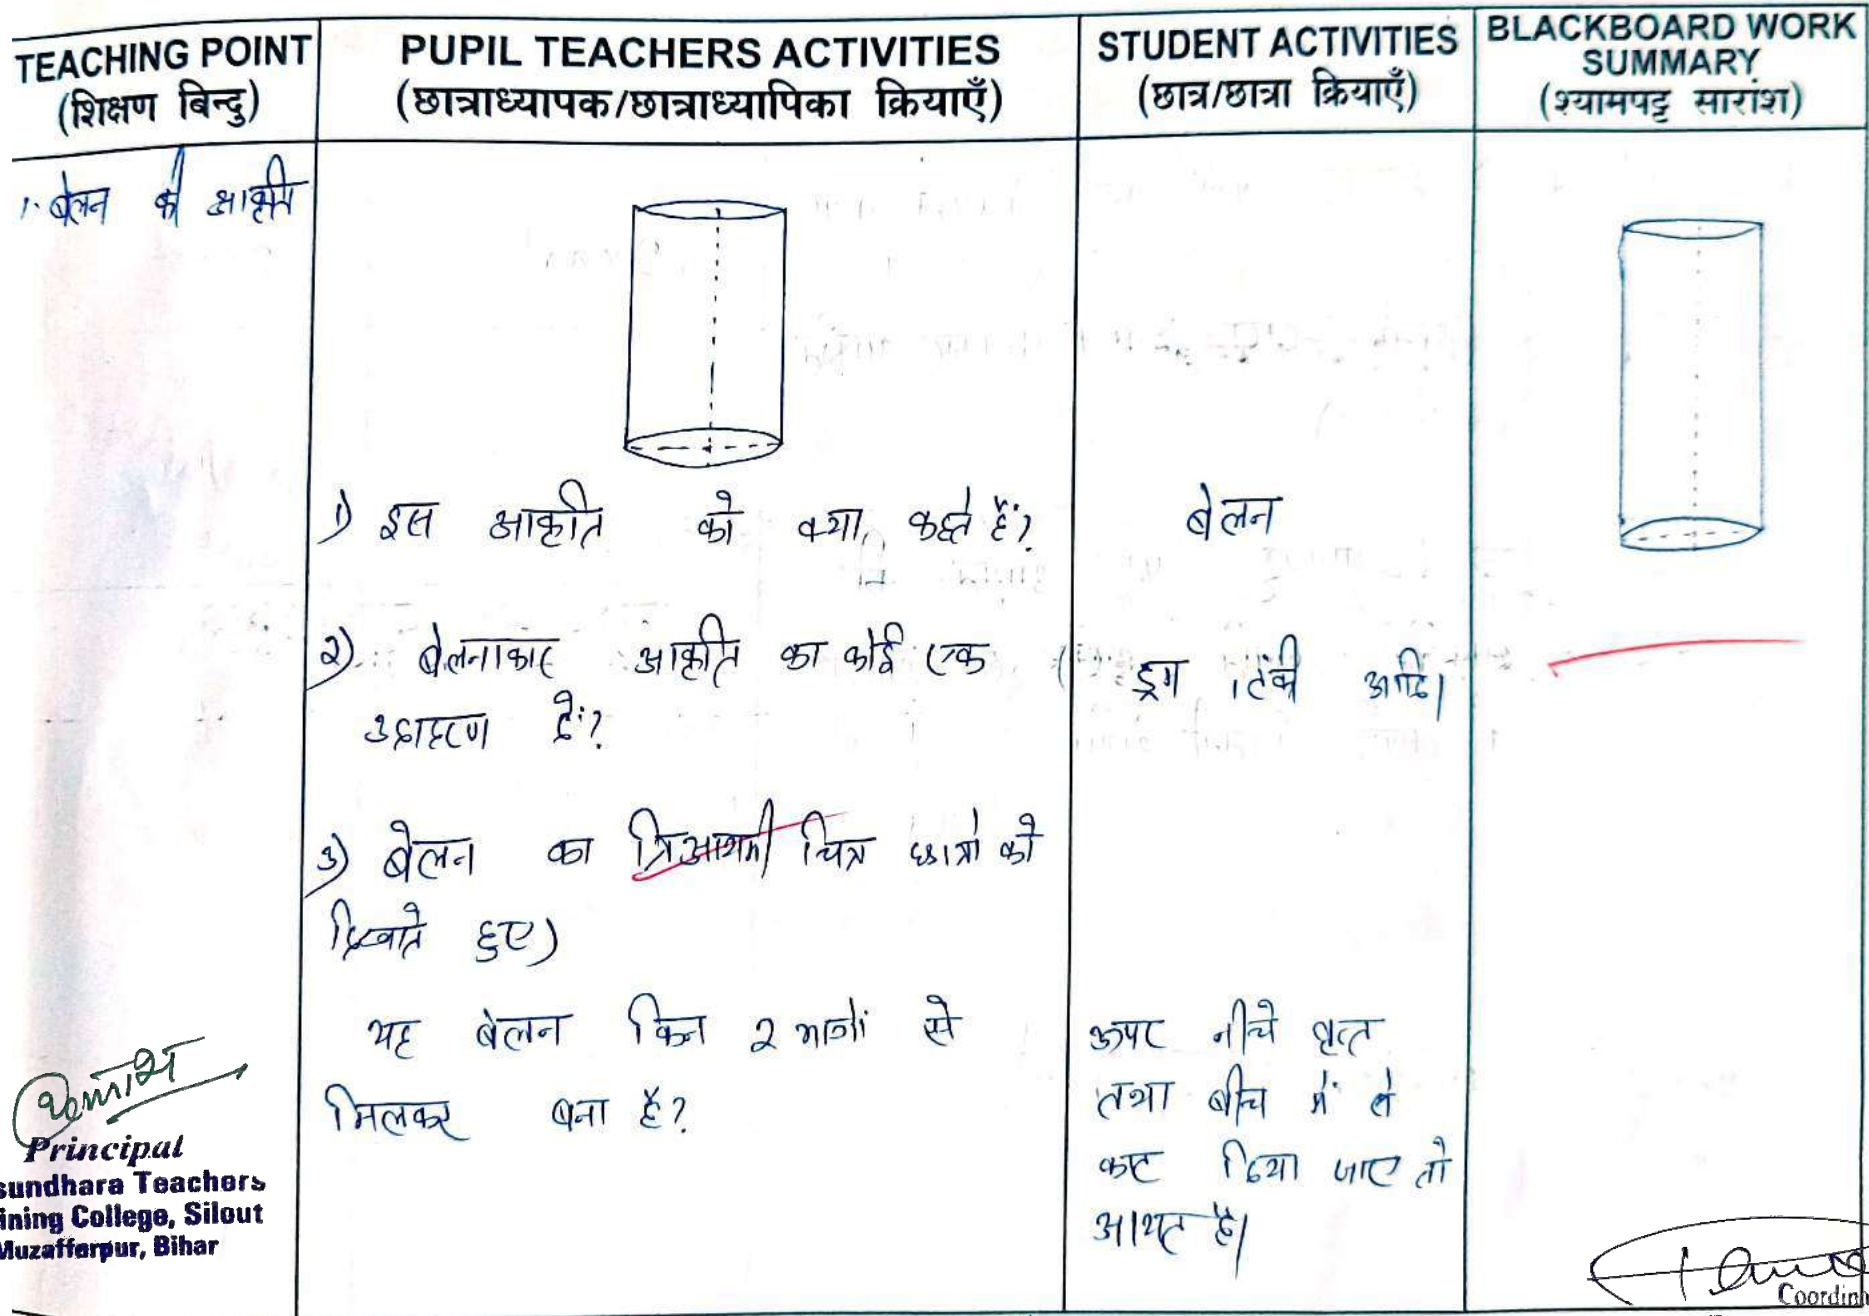 TEACHING POINT
(शिक्षण बिन्दु)
PUPIL TEACHERS ACTIVITIES
(छात्राध्यापक/छात्राध्यापिका क्रियाएँ)
STUDENT ACTIVITIES
(छात्र/छात्रा क्रियाएँ)
BLACKBOARD WORK
SUMMARY
(श्यामपट्ट सारांश)
1. बेलन की आकृति
1) इस आकृति को क्या कहते हैं?
बेलन
2) बेलनाकार आकृति का कोई एक
उदाहरण दें?
ड्रम, टंकी आदि।
3) बेलन का त्रिआयामी चित्र छात्रों को
दिखाते हुए)
यह बेलन किन 2 भागों से
मिलकर बना है?
ऊपर नीचे वृत्त
तथा बीच में से
काट दिया जाए तो
आयत है।
Principal
sundhara Teachers
ining College, Silout
Muzaffarpur, Bihar
Coordin